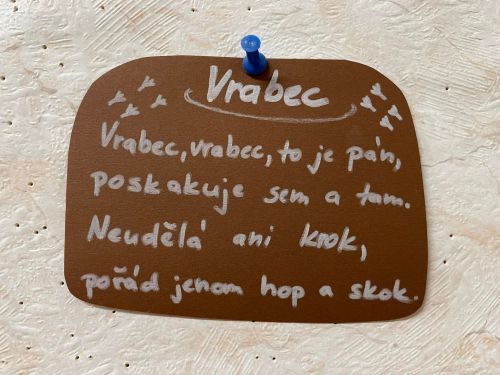 Vrabec
Vrabec, vrabec, to je pán,
poskakuje sem a tam.
Neudělá ani krok,
pořád jenom hop a skok.